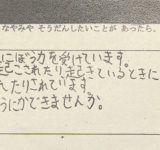 なやみや そうだんしたいことが あったら、
にぼう力を受けています。
起こされたり起きているときに
んたりされています。
うにかできませんか。